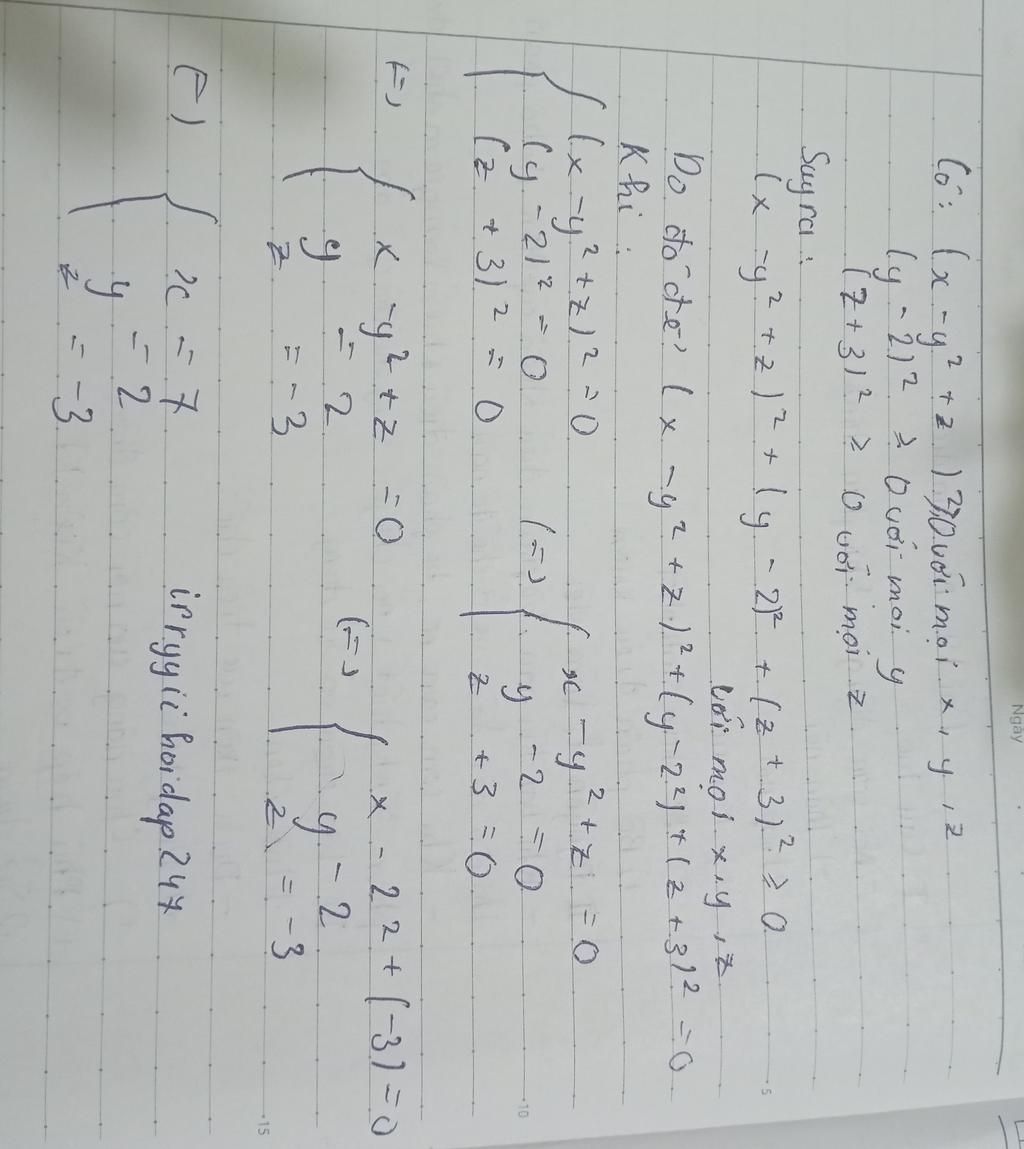 Ngay
Có: (x - y² + z)² ≥ 0 với mọi x, y, z
(y - 2)² ≥ 0 với mọi y
(z + 3)² ≥ 0 với mọi z
Suy ra:
(x - y² + z)² + (y - 2)² + (z + 3)² ≥ 0
với mọi x, y, z
5
Do đó để (x - y² + z)² + (y - 2²) + (z + 3)² = 0
Khi:
{ (x - y² + z)² = 0 (=) { x - y² + z = 0
(y - 2)² = 0 y - 2 = 0
(z + 3)² = 0 z + 3 = 0
10
(=) { x - y² + z = 0 (=) { x - 2² + (-3) = 0
y = 2 y - 2
z = -3 z = -3
15
(=) { x = 7
y = 2
z = -3
inryyii hoidap247